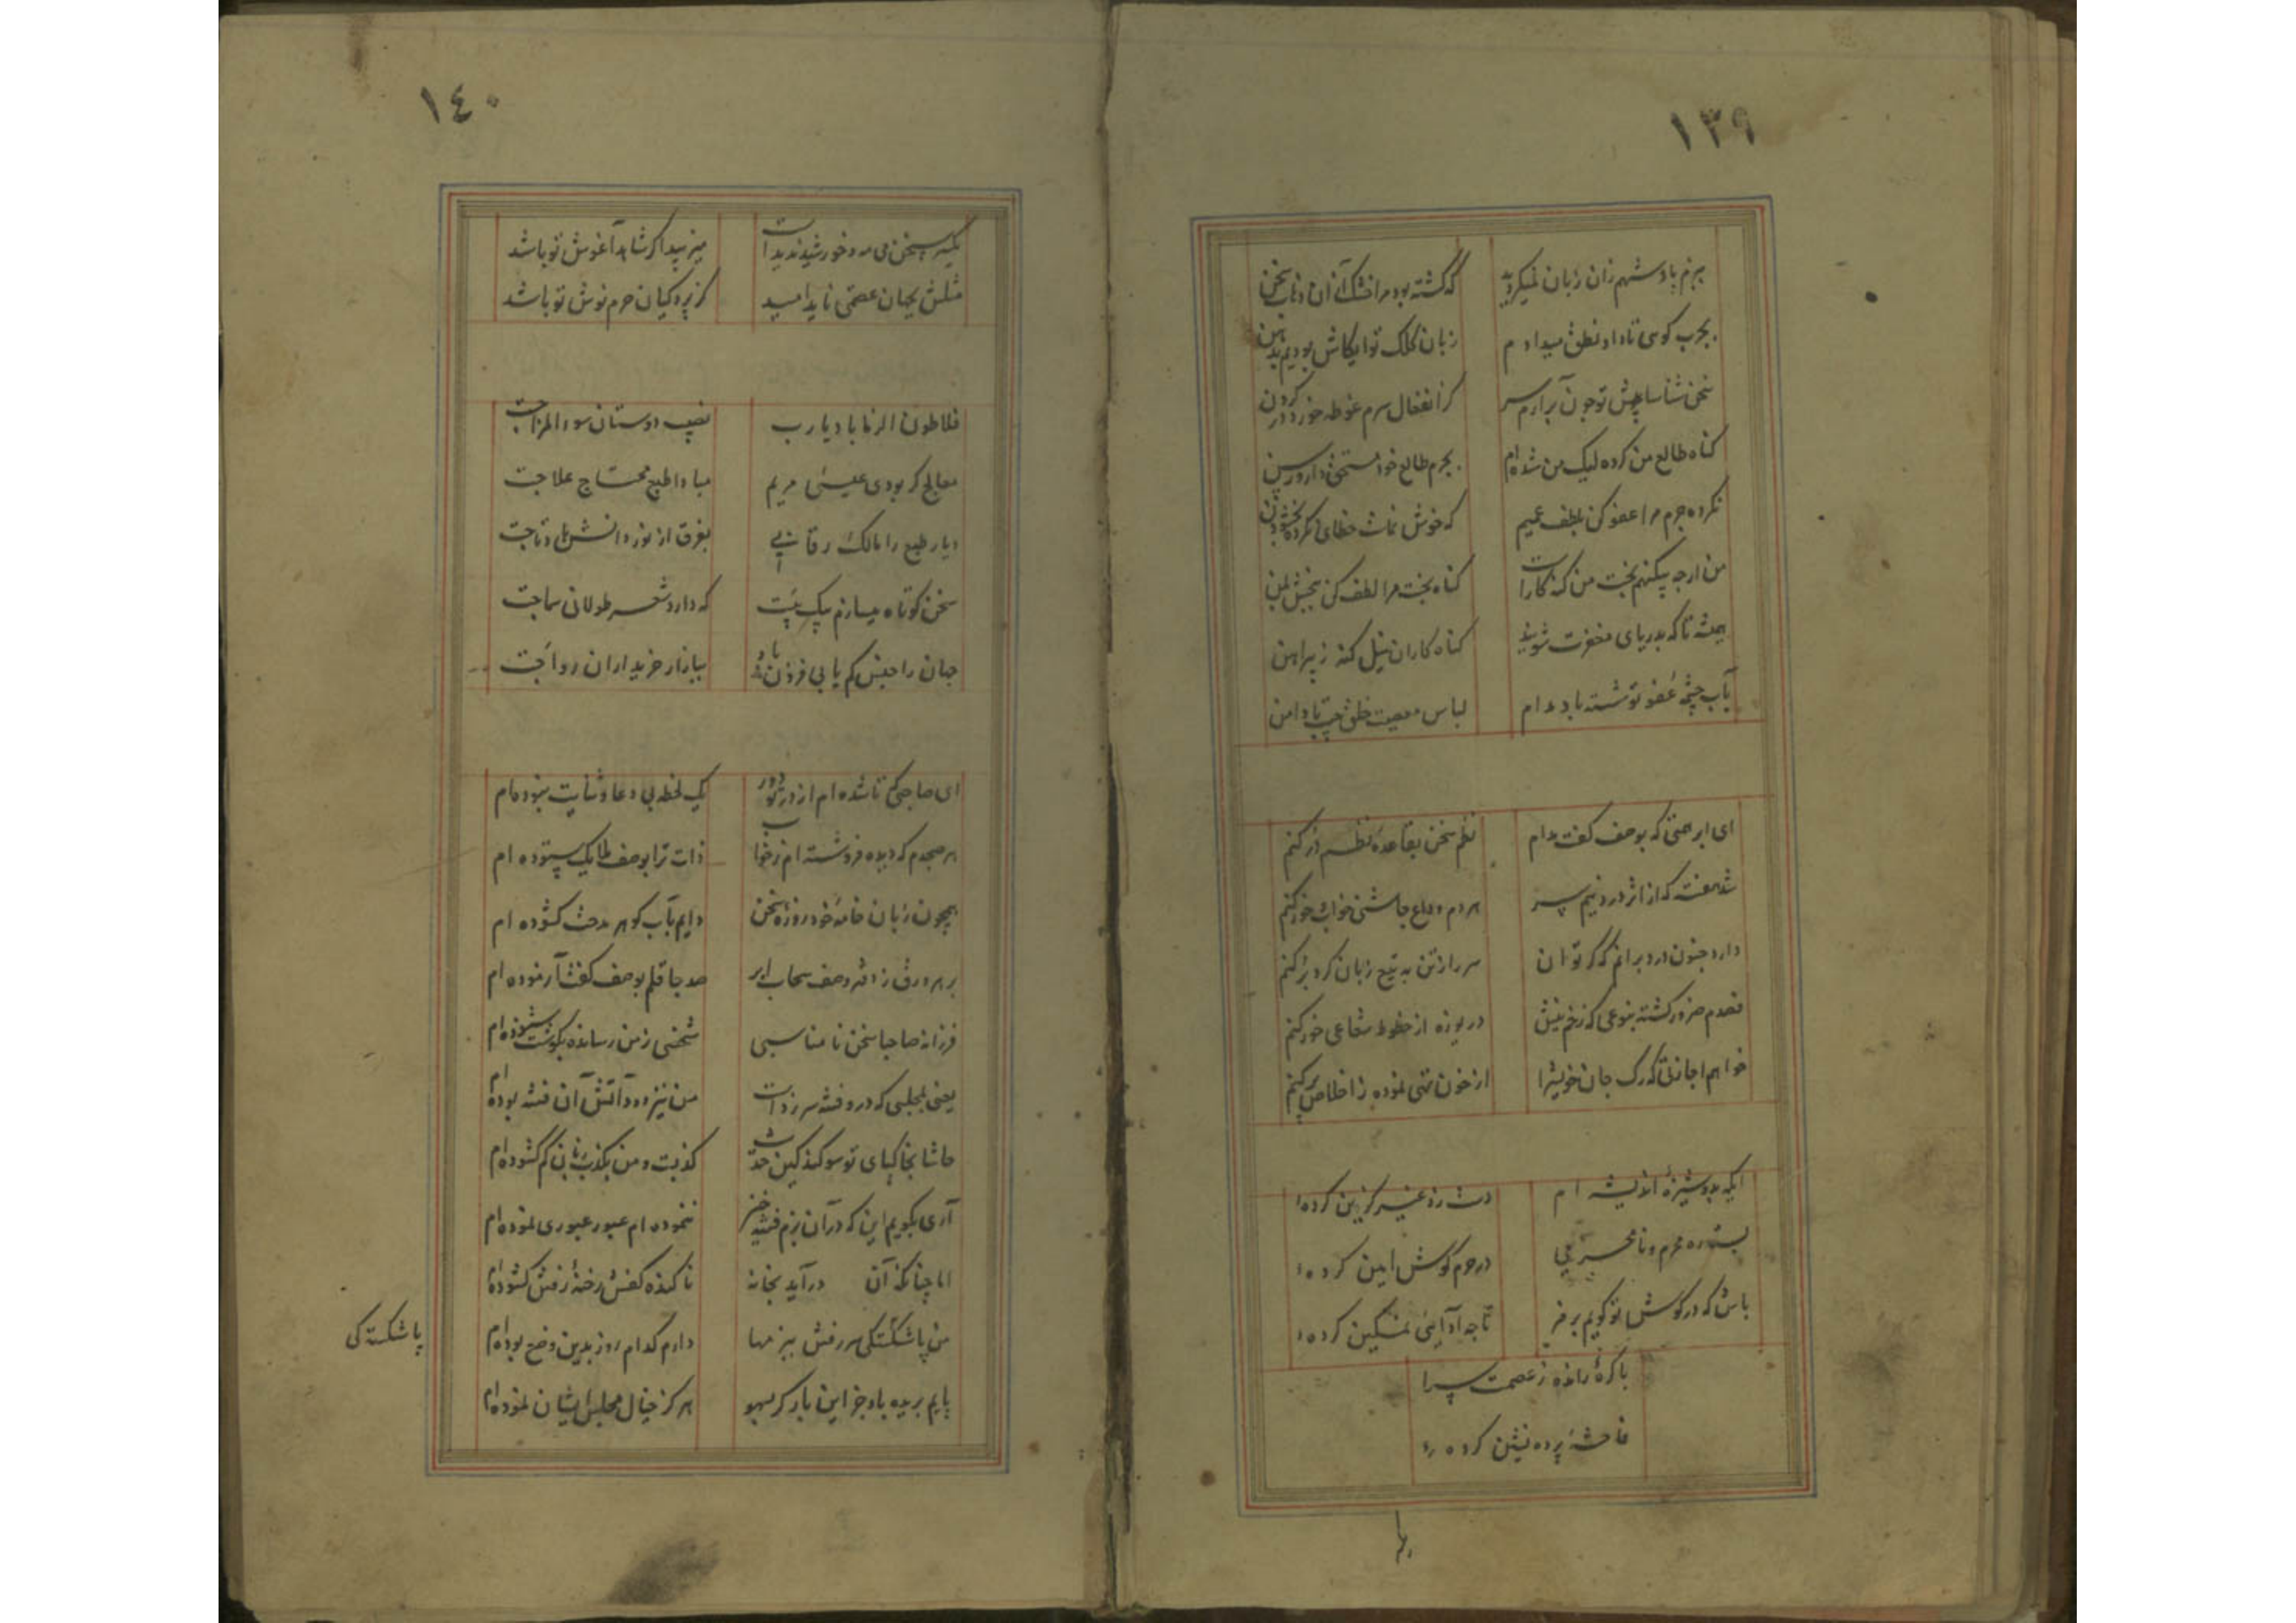 ١٣٩
بزم پادشهم زان زبان نمیکردید
که گشته بود مرا خشک آن زبان سخن
بچرب کوسی تا داد نطق میدادم
زبان کلک تو ایکاش بودیم بدهن
سخن شناسا پیش تو چون برآرم سر
کز انفعال سرم غوطه خورد در گردن
کناه طالع من کرده لیک من شده ام
بجرم طالع خود مستحق دار و رسن
نکرده جرم مرا عفو کن بلطف عمیم
که خوش نماست خطای نکرده بخشودن
من ارچه بیکنهم بخت من کنه کارست
کناه بخت مرا لطف کن ببخش بمن
همیشه تا که بدریای مغفرت شویند
کناه کاران نیل کنه ز پیراهن
بآب چشمه عفو تو شسته باد مدام
لباس معصیت خلق جیب تا دامن
ای ابر همتی که بوصف کفت مدام
نظم سخن بقاعده نظم در کنم
شد هفته که از اثر درد نیم سر
هر دم وداع چاشنی خواب و خور کنم
دارد جنون درد بر آنم که کر توان
سر را ز تن به تیغ زبان کرد بر کنم
قصدم ضرور کشته بنوعی که زخم نیش
دریوزه از خطوط شعاعی خور کنم
خواهم اجازتی که رک جان خویشرا
از خون تهی نموده ز اخلاص پر کنم
ایکه بدوشیزه اندیشه ام
دست رد غیر کزین کرده
بسته ره محرم و نامحرمی
در حرم کوش امین کرده
باش که در کوش تو کویم برمز
تا چه آدابی تمکین کرده
باکره رانده ز عصمت سرا
فاحشه پرده نشین کرده
١٤٠
یکیه سخن می مه و خورشید ندیدست
میزیبد اکر شاهد آغوش تو باشد
مثلش بجهان عصمتی ناید امید
کز پردکیان حرم نوش تو باشد
فلاطون الزمانا باد یارب
نصیب دوستان سوء المزاجت
معالج کر بودی عیسی مریم
مبادا طبع محتاج علاجت
دیار طبع را مالک رقابی
بفرق از نور دانش باد تاجت
سخن کوتاه میسازم پیکبیت
که دارد شعر طولانی سماجت
جهان را جنس کم یابی فزون باد
ببازار خریداران رواجت
ای صاحبی که تا شده ام از در تو دور
یک لحظه بی دعا و ثنایت نبوده ام
هر صبحدم که دیده فروشسته ام ز خواب
ذات ترا بوصف ملایک ستوده ام
همچون زبان خامه خود روزه سخن
دایم بآب کوهر مدحت کشوده ام
بر هر ورق ز دفتر وصف سحاب ابر
صد جا قلم بوصف کفت آزموده ام
فرزانه صاحبا سخن نامناسبی
شخصی ز من رسانده بکوشت شنوده ام
یعنی بمجلسی که درو فتنه سر زدست
من نیز دود آتش آن فتنه بوده ام
حاشا بخاکپای تو سوکند کین حدیث
کذبست و من بکذب زبان کم کشوده ام
آری بکویم این که در آن بزم فتنه خیز
ننموده ام عبور عبوری نموده ام
اما چنانکه آن درآید بخانه
ناکنده کفش رخنه رفتن کشوده ام
من پاشکستکی سر رفتن ببزمها
دارم کدام روز بدین وضع بوده ام
پایم بریده باد جز این بار کر بسهو
هرکز خیال مجلس ایشان نموده ام
پاشکسته کی